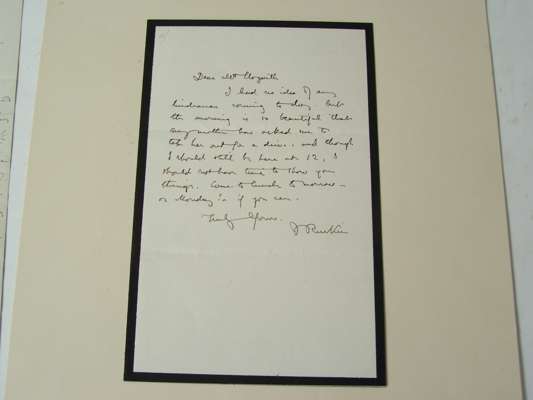 Dear Mr
I had no idea of any
hindrance coming to day but
the morning is so beautiful that
my mother has asked me to
take her out for a drive. and though
I should still be here at 12, I
should not have time to show you
things. Come to lunch to morrow -
or Monday if you can.
Truly Yours.
J Ruskin